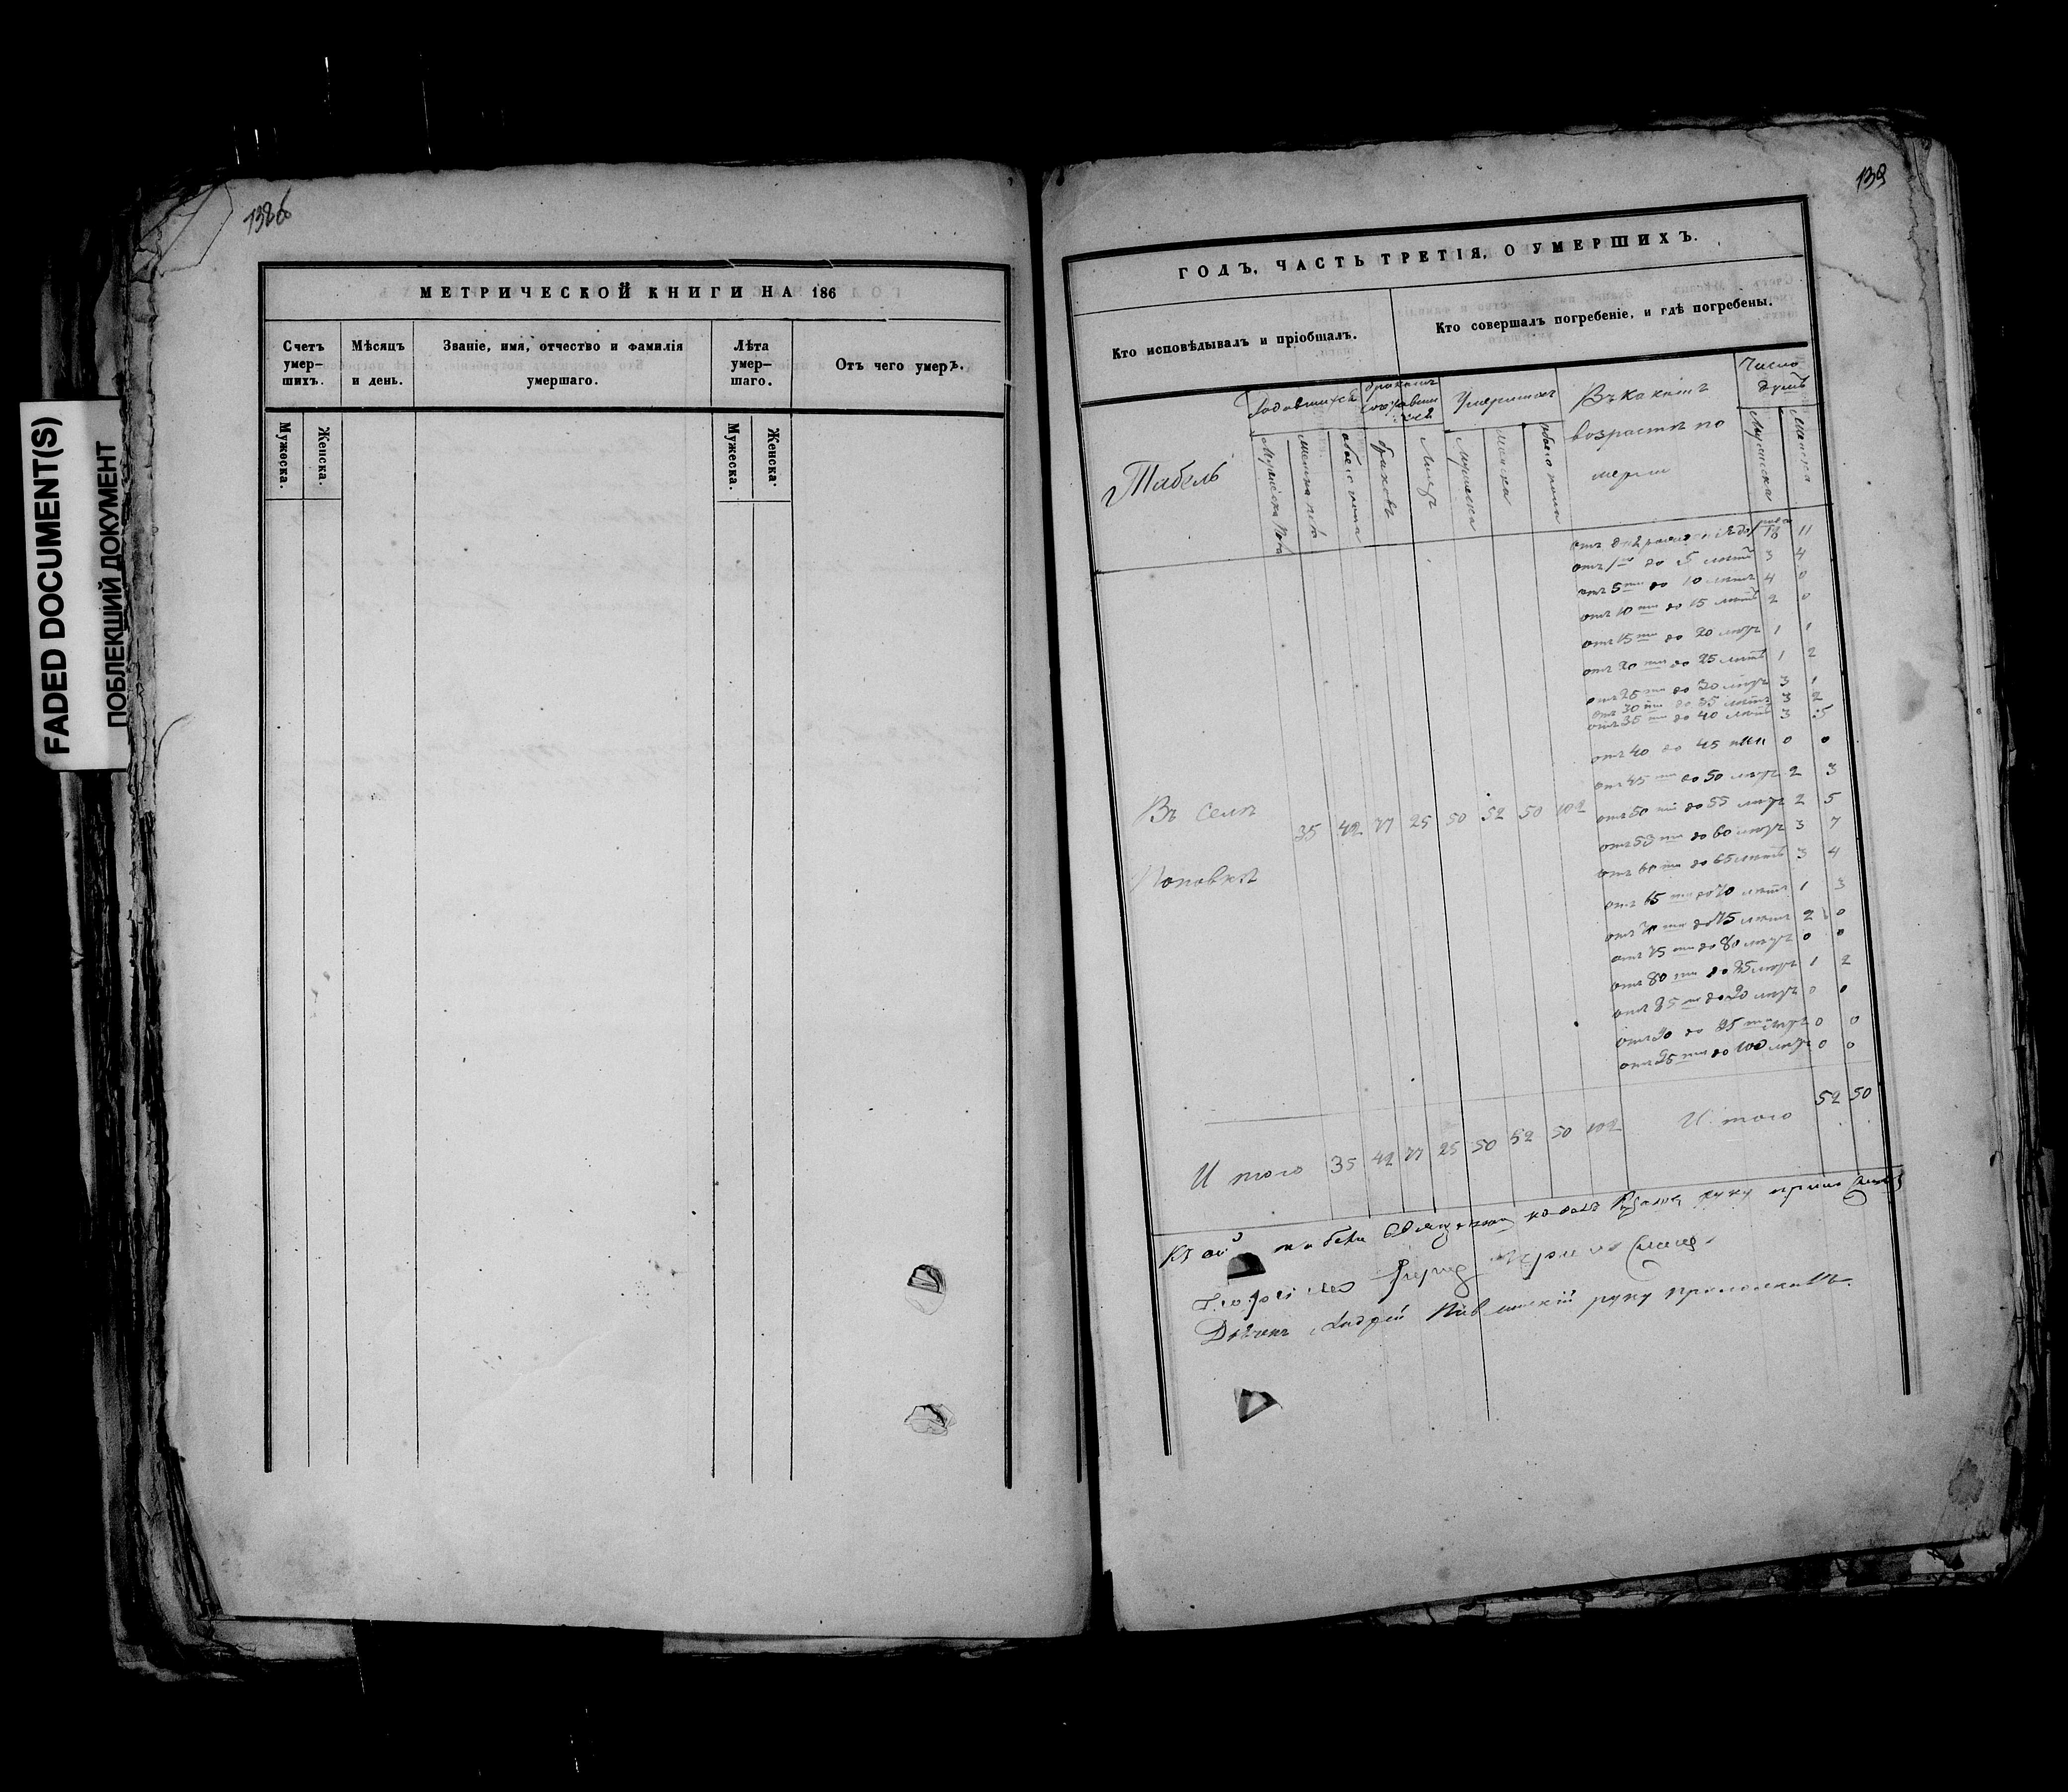 FADED DOCUMENT(S)
ПОБЛЕКШИЙ ДОКУМЕНТ
МЕТРИЧЕСКОЙ КНИГИ НА 186
Счетъ умер-шихъ.
Мужеска.
Женска.
Мѣсяцъ и день.
Званіе, имя, отчество и фамилія умершаго.
Лѣта умер-шаго.
Мужеска.
Женска.
Отъ чего умеръ.
139
ГОДЪ, ЧАСТЬ ТРЕТІЯ, О УМЕРШИХЪ.
Кто исповѣдывалъ и пріобщалъ.
Кто совершалъ погребеніе, и гдѣ погребены.
Табель
Родившихся
Умершихъ
Въ какихъ возрастѣ по мерли
Число душъ
браковъ
Лицъ
обоего пола
отъ дня рожденія до 1 года 18 11
отъ 1 го до 5 лѣтъ 3 4
отъ 5 ти до 10 лѣтъ 4 0
отъ 10 ти до 15 лѣтъ 2 0
отъ 15 ти до 20 лѣтъ 1 1
отъ 20 ти до 25 лѣтъ 1 2
отъ 25 ти до 30 лѣтъ 3 1
отъ 30 ти до 35 лѣтъ 3 2
отъ 35 ти до 40 лѣтъ 3 5
отъ 40 до 45 ти 0 0
отъ 45 ти до 50 лѣтъ 2 3
отъ 50 ти до 55 лѣтъ 2 5
отъ 55 ти до 60 лѣтъ 3 7
отъ 60 ти до 65 лѣтъ 3 4
отъ 65 ти до 70 лѣтъ 1 3
отъ 70 ти до 75 лѣтъ 2 0
отъ 75 ти до 80 лѣтъ 0 0
отъ 80 ти до 85 лѣтъ 1 2
отъ 85 ти до 90 лѣтъ 0 0
отъ 90 до 95 ти лѣтъ 0 0
отъ 95 ти до 100 лѣтъ 0 0
Въ селѣ
Поповкѣ
35 42 77 25 50 52 50 102
И того 35 42 77 25 50 52 50 102 И того 52 50
Къ сей табели Священник руку приложилъ
Дьячекъ Андрей руку приложилъ.